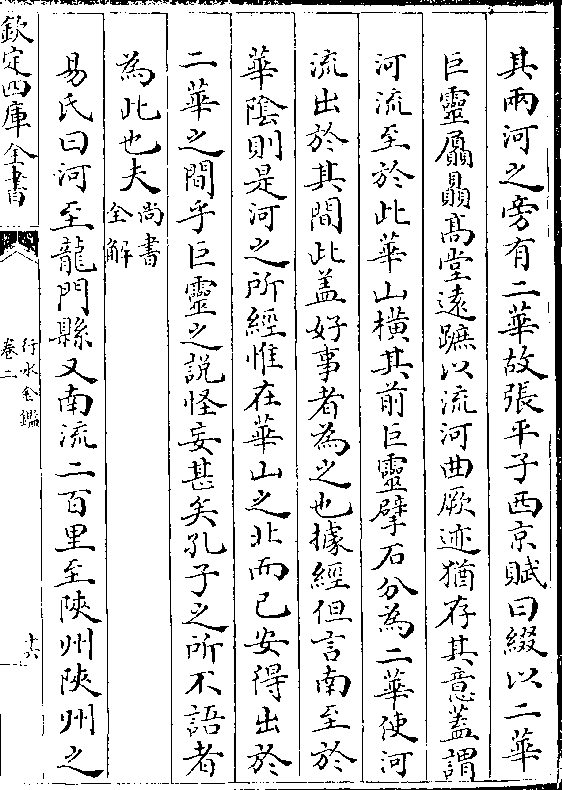 其兩河之旁有二華故張平子西京賦曰綴以二華
巨靈贔屭高堂遠蹠以流河曲厥迹猶存其意蓋謂
河流至於此華山橫其前巨靈擘石分為二華使河
流出於其間此盖好事者為之也據經但言南至於
華陰則是河之所經惟在華山之北而已安得出於
二華之間乎巨靈之說怪妄甚矣孔子之所不語者
為此也夫尚書全解
易氏曰河至龍門縣又南流二百里至陜州陜州之
欽定四庫全書
行水金鑑
卷二
十六